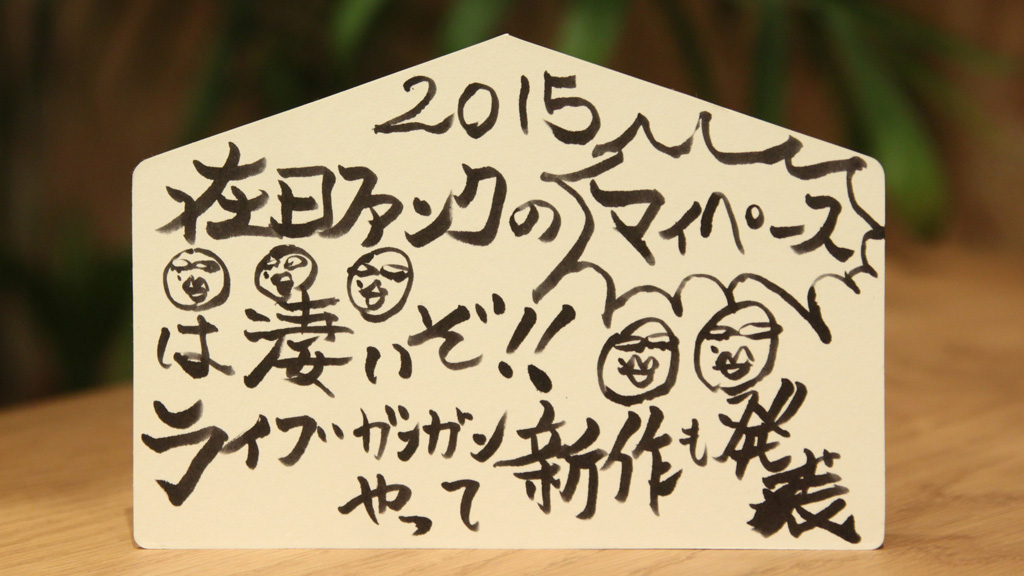 2015
在日ファンクのマイペース
は凄いぞ!!
ライブガンガン新作も発表
やって